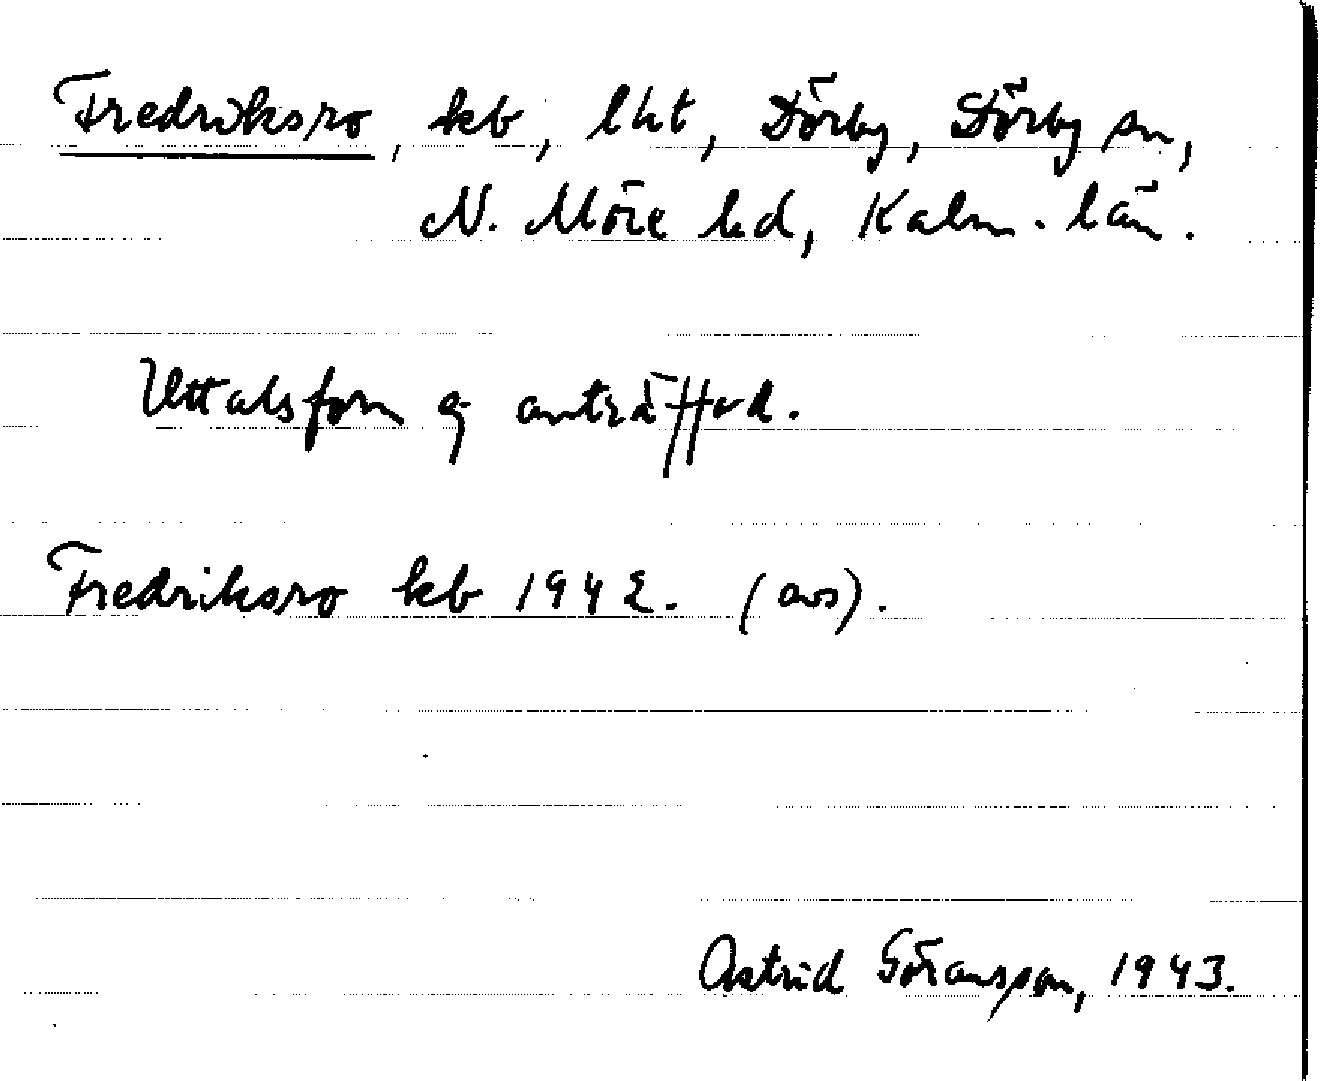 Fredriksro, kb, lht, Dörby, Dörby sn,
N. Möre hd, Kalm. län.
Uttalsform ej anträffad.
Fredriksro kb 1942. (avs).
Astrid Göransson, 1943.